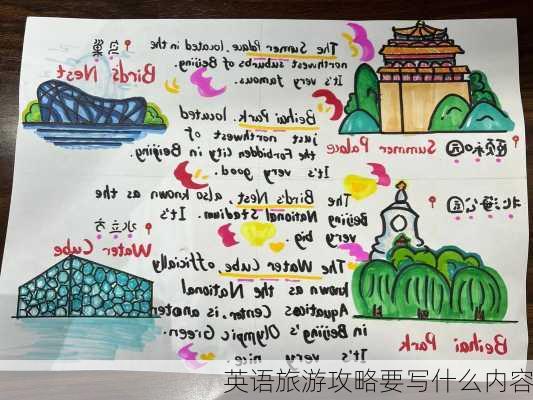 鸟巢
Bird's Nest
The Summer Palace, located in the
northwest suburbs of Beijing.
It's very famous.
颐和园
Summer Palace
Beihai Park, located
just northwest of
the Forbidden City in Beijing
It's very good.
The Bird's Nest, also known as the
Beijing National Stadium. It's
very big.
北海公园
Beihai Park
水立方
Water Cube
The Water Cube officially
known as the National
Aquatics Center, is
in Beijing's Olympic Green.
It's very nice.
英语旅游攻略要写什么内容